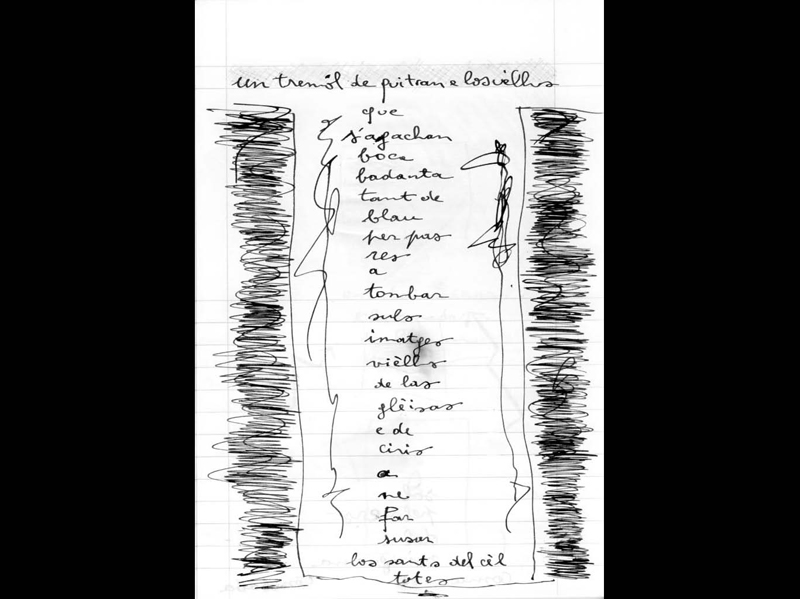 un tremól de quitran e los vièlhs
que
s'agachan
boca
badanta
tant de
blau
per pas
res
a
tombar
suls
imatges
vièlhs
de las
glèisas
e de
ciris
a
ne
far
susar
los sants del cèl
totes